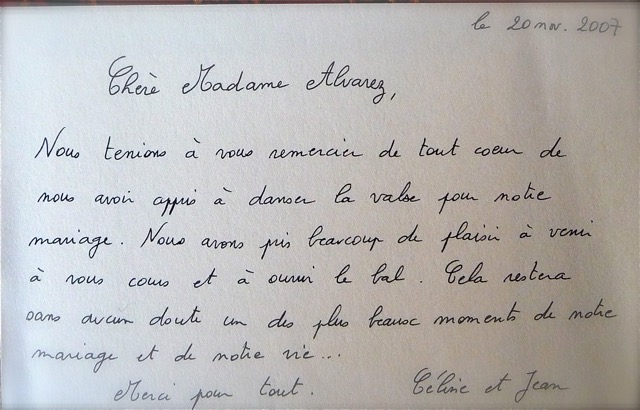 le 20 nov. 2007
Chère Madame Alvarez,
Nous tenions à vous remercier de tout coeur de
nous avoir appris à danser la valse pour notre
mariage. Nous avons pris beaucoup de plaisir à venir
à vous cours et à ouvrir le bal. Cela restera
sans aucun doute un des plus beaux moments de notre
mariage et de notre vie...
Merci pour tout. Céline et Jean